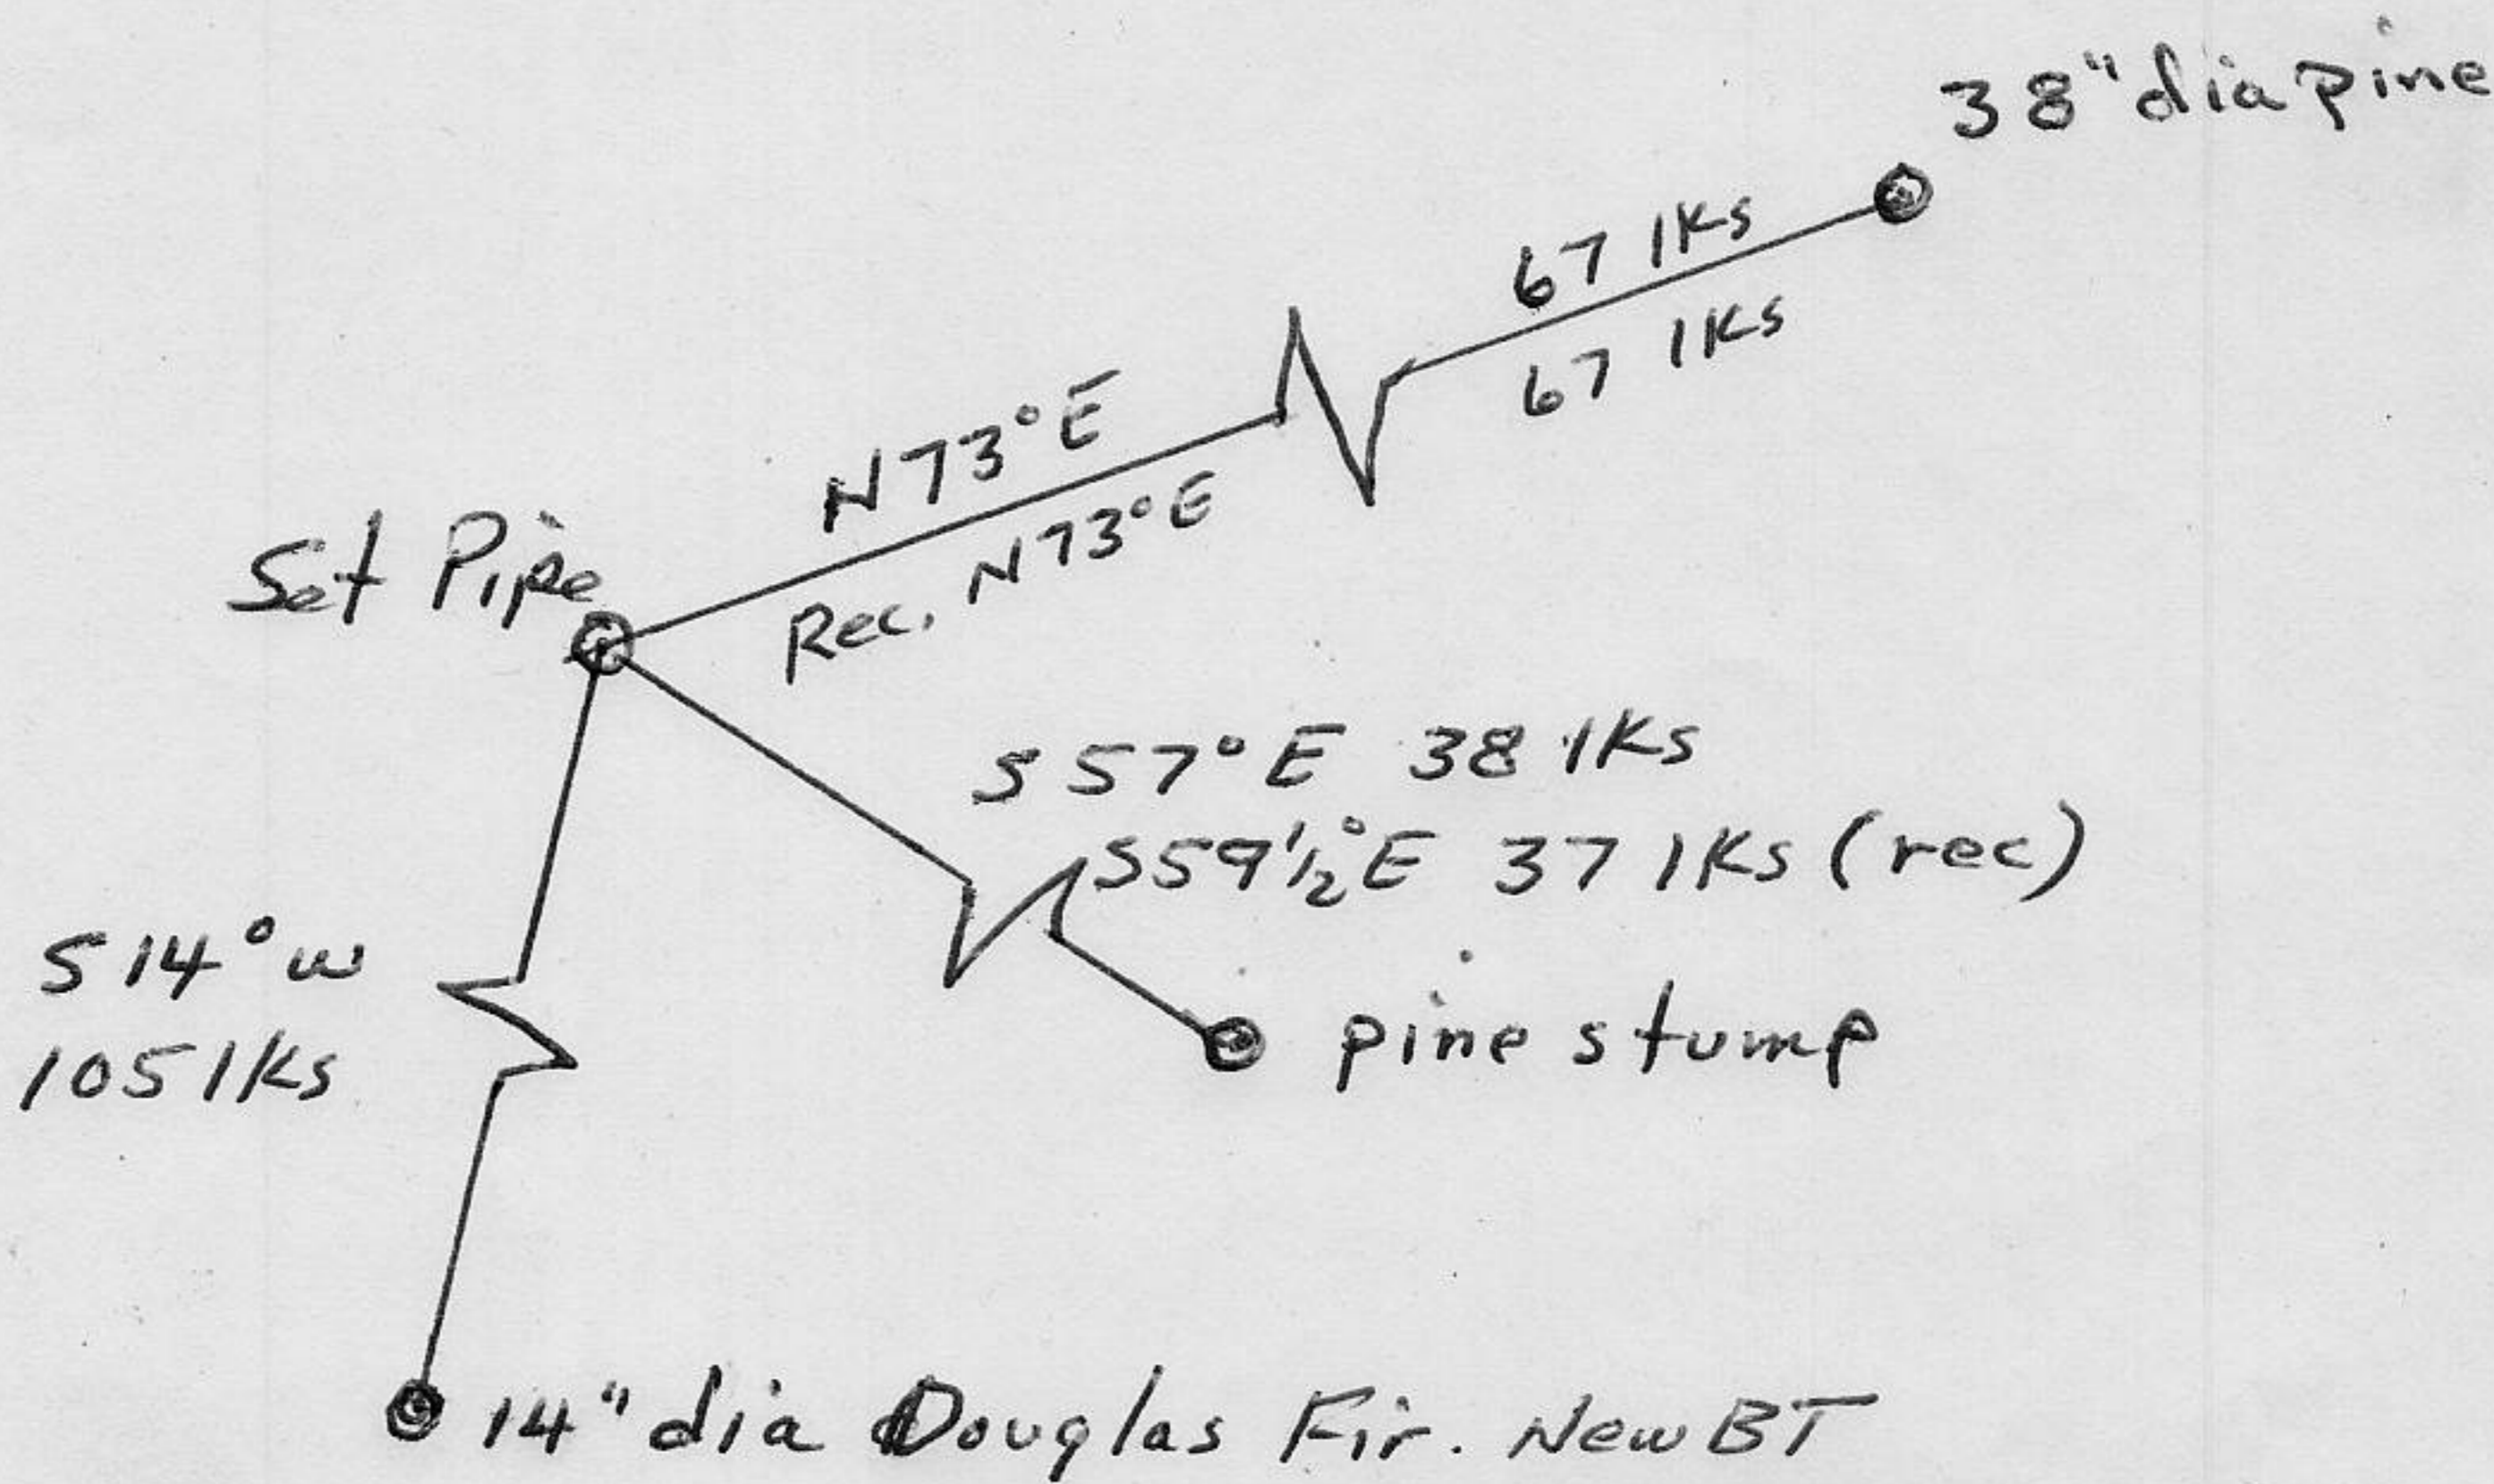 38" dia pine
67 lks
67 lks
N73°E
Rec. N73°E
Set Pipe
S 57° E 38 lks
S59½°E 37 lks (rec)
S 14° W
105 lks
pine stump
14" dia Douglas Fir. New BT